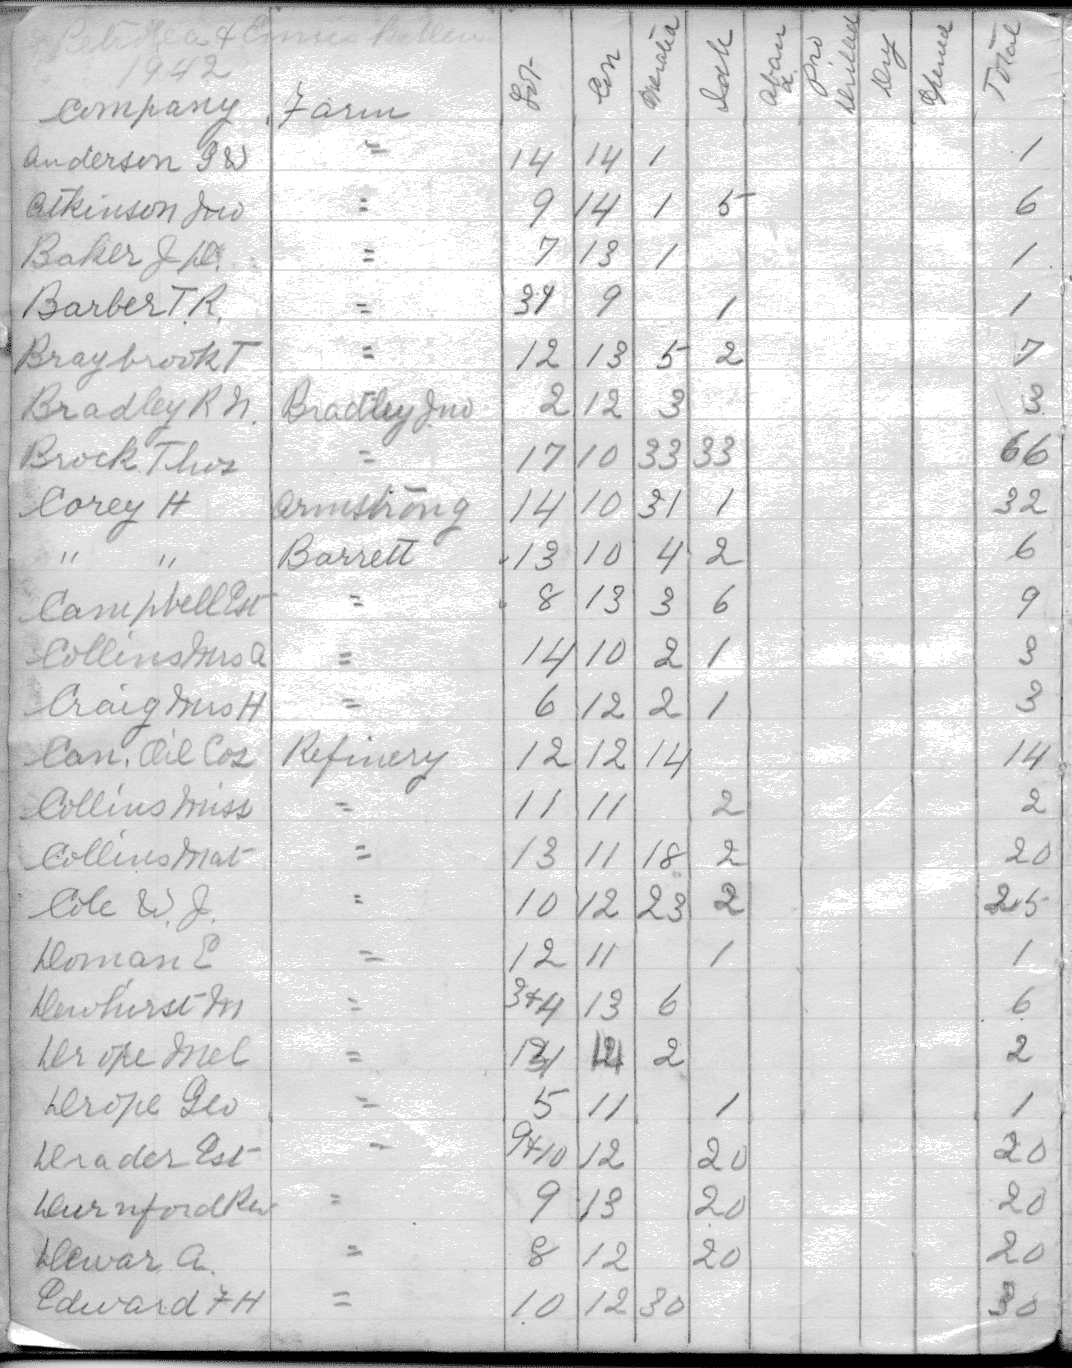 Petrolea & Ennis
1942
Company Farm Lot Con Operated Idle Aban Pro Derilad Dry Total
Anderson G W = 14 14 1 1
Atkinson Jno = 9 14 1 5 6
Baker J D. = 7 13 1 1
Barber T. R. = 9 1 1
Braybrook T = 12 13 5 2 7
Bradley R N. Bradley Jno 2 12 3 3
Brock Thos = 17 10 33 33 66
Corey H Armstrong 14 10 31 1 32
" " Barrett 13 10 4 2 6
Campbell Est = 8 13 3 6 9
Collins Mrs A = 14 10 2 1 3
Craig Mrs H = 6 12 2 1 3
Can. Oil Cos Refinery 12 12 14 14
Collins Miss = 11 11 2 2
Collins Mat = 13 11 18 2 20
Cole W. J. = 10 12 23 2 25
Doman E = 12 11 1 1
Dewhirst M = 3+4 13 6 6
Drope Mel = 2 2
Drope Geo = 5 11 1 1
Drader Est = 9+10 12 20 20
Durnford Rev = 9 13 20 20
Dewar A. = 8 12 20 20
Edward F H = 10 12 30 30